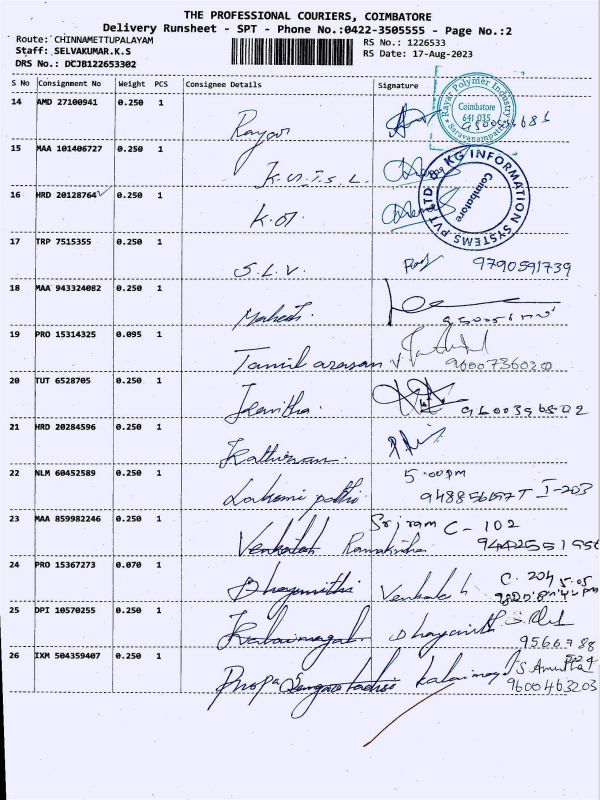 THE PROFESSIONAL COURIERS, COIMBATORE
Delivery Runsheet - SPT - Phone No.:0422-3505555 - Page No.:2
Route: CHINNAMETTUPALAYAM
Staff: SELVAKUMAR.K.S
DRS No.: DCJB122653302
RS No.: 1226533
RS Date: 17-Aug-2023
S No Consignment No Weight PCS Consignee Details Signature
14 AMD 27100941 0.250 1
Rayar
Rayar Polymer Industry
Coimbatore
641 035
Saravanampatti
15 MAA 101406727 0.250 1
K.G.I.S.L.
KG INFORMATION SYSTEMS PVT LTD
Coimbatore
16 HRD 20128764 0.250 1
17 TRP 7515355 0.250 1
S.L.V. 9790591739
18 MAA 943324082 0.250 1
Mahesh.
19 PRO 15314325 0.095 1
Tamil arasan V. 9600736020
20 TUT 6528705 0.250 1
Kavitha. 9600396502
21 HRD 20284596 0.250 1
Kathirvan.
22 NLM 60452589 0.250 1
5.00pm
Lakshmi pathi. I-203
23 MAA 859982246 0.250 1
Sriram C-102
Venkatesh Ramakrishna
24 PRO 15367273 0.070 1
C. 204 5.05
Dhayanithi Venkatesh
25 DPI 10570255 0.250 1
Kalaimagal Dhayanithi
26 IXM 504359407 0.250 1
S. Amutha
Kalaimagal 9600463203